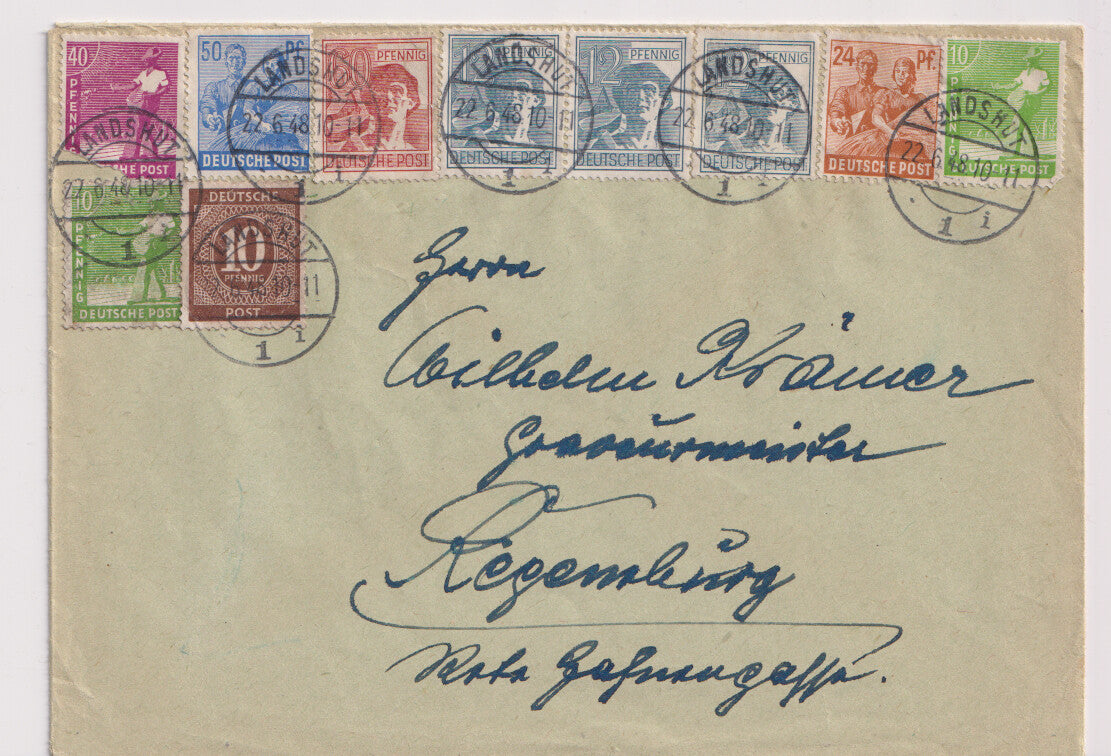 40 PFENNIG DEUTSCHE POST
50 Pf. DEUTSCHE POST
60 PFENNIG DEUTSCHE POST
12 PFENNIG DEUTSCHE POST
12 PFENNIG DEUTSCHE POST
12 PFENNIG DEUTSCHE POST
24 Pf. DEUTSCHE POST
10 PFENNIG DEUTSCHE POST
LANDSHUT 22.6.48.10-11 1 i
LANDSHUT 22.6.48.10-11 1 i
LANDSHUT 22.6.48.10-11 1 i
LANDSHUT 22.6.48.10-11 1 i
LANDSHUT 22.6.48.10-11 1
10 PFENNIG DEUTSCHE POST
DEUTSCHE 10 PFENNIG POST
LANDSHUT 6.48.10-11 1 i
Herrn
Wilhelm Krämer
Graveurmeister
Regensburg
Rote Hahnengasse.